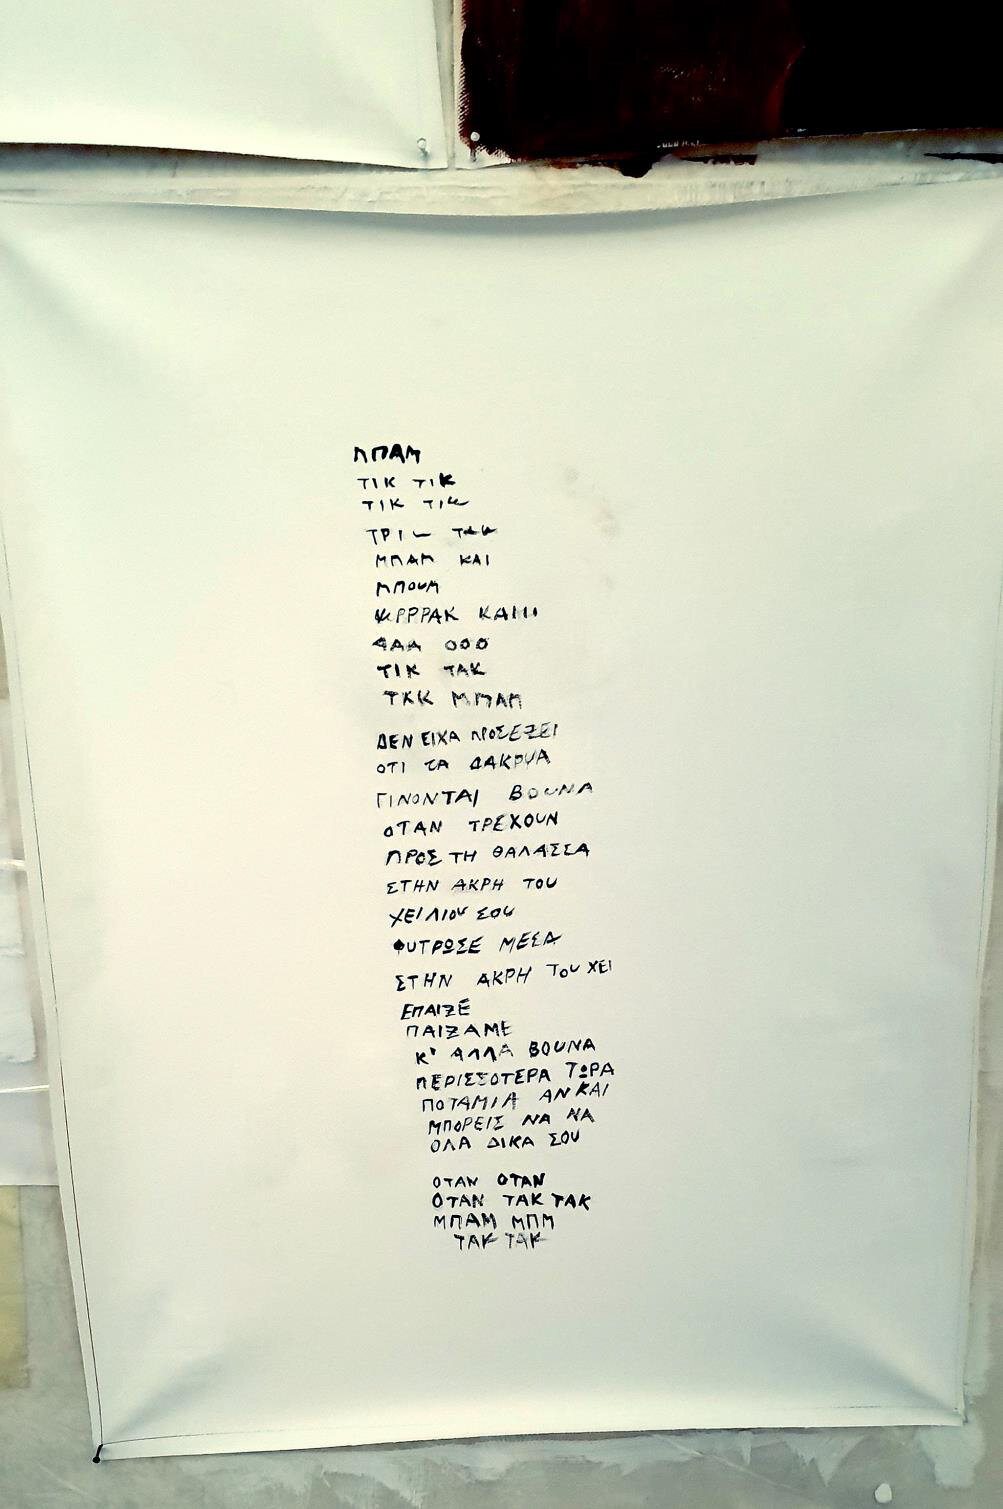 ΜΠΑΜ
ΤΙΚ ΤΙΚ
ΤΙΚ ΤΙΚ
ΤΡΙΚ ΤΑΚ
ΜΠΑΜ ΚΑΙ
ΜΠΟυΜ
ΚΑΙΙΙ
ΑΑΑ ΟΟΟ
ΤΙΚ ΤΑΚ
ΜΠΑΜ
ΔΕΝ ΕΙΧΑ ΠΡΟΣΕΞΕΙ
ΟΤΙ ΤΑ ΔΑΚΡυΑ
ΓΙΝΟΝΤΑΙ ΒΟυΝΑ
ΟΤΑΝ ΤΡΕΧΟυΝ
ΠΡΟΣ ΤΗ ΘΑΛΑΣΣΑ
ΣΤΗΝ ΑΚΡΗ ΤΟυ
ΧΕΙΛΙΟυ ΣΟυ
ΦυΤΡΩΣΕ ΜΕΣΑ
ΣΤΗΝ ΑΚΡΗ ΤΟυ ΧΕΙ
ΕΠΑΙΞΕ
ΠΑΙΞΑΜΕ
Κ' ΑΛΛΑ ΒΟυΝΑ
ΠΕΡΙΣΣΟΤΕΡΑ ΤΩΡΑ
ΠΟΤΑΜΙΑ ΑΝ ΚΑΙ
ΜΠΟΡΕΙΣ ΝΑ ΝΑ
ΟΛΑ ΔΙΚΑ ΣΟυ
ΟΤΑΝ ΟΤΑΝ
ΟΤΑΝ ΤΑΚ ΤΑΚ
ΜΠΑΜ ΜΠΜ
ΤΑΚ ΤΑΚ